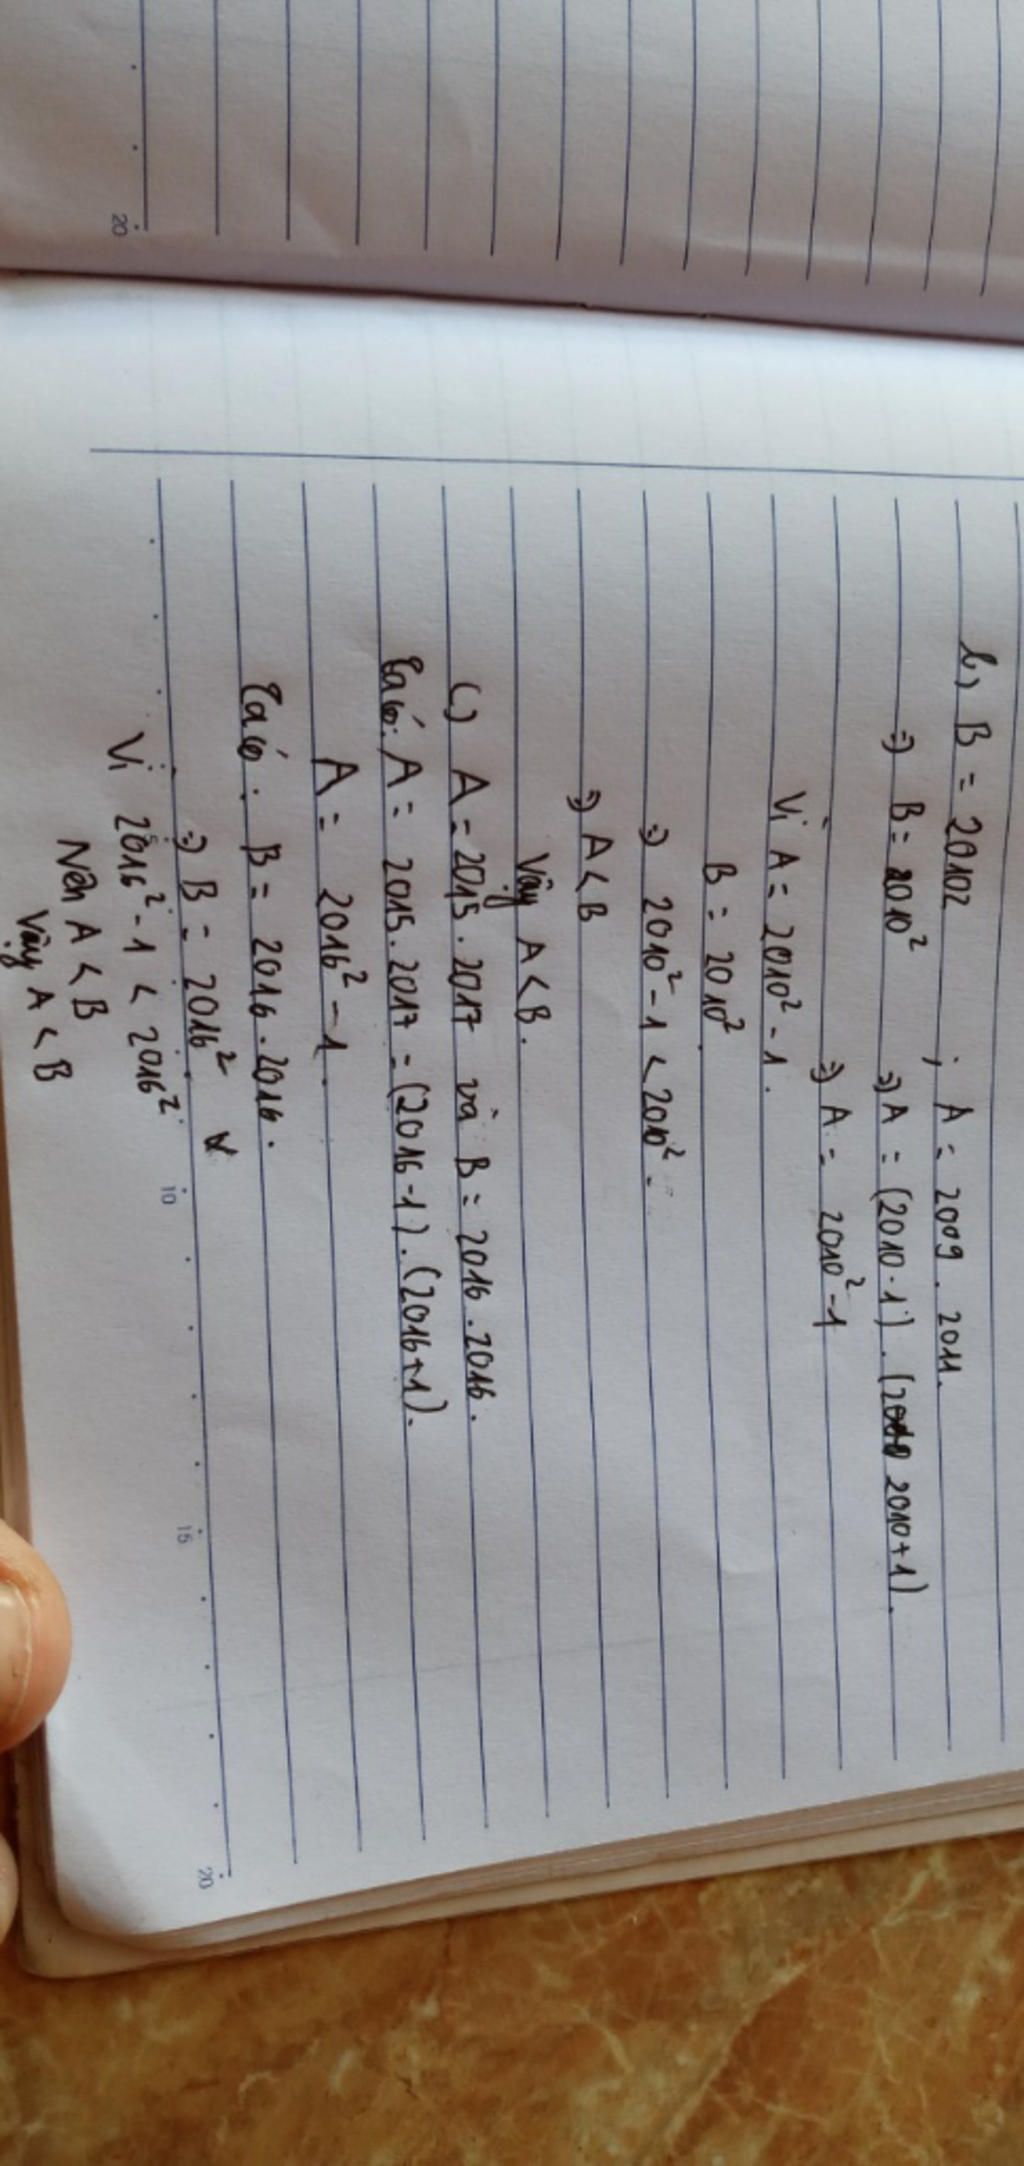 b, B = 20102 ; A = 2009 . 2011.
=) B = 2010² =) A = (2010-1) . (2010+1).
=) A = 2010² - 1
Vì A = 2010² - 1.
B = 2010².
=) 2010² - 1 < 2010².
=) A < B
Vậy A < B.
c) A = 2015 . 2017 và B = 2016 . 2016.
Ta có: A = 2015. 2017 = (2016-1).(2016+1).
A = 2016² - 1.
Ta có: B = 2016. 2016.
=) B = 2016²
Vì 2016² - 1 < 2016².
Nên A < B
Vậy A < B
20
10
15
20